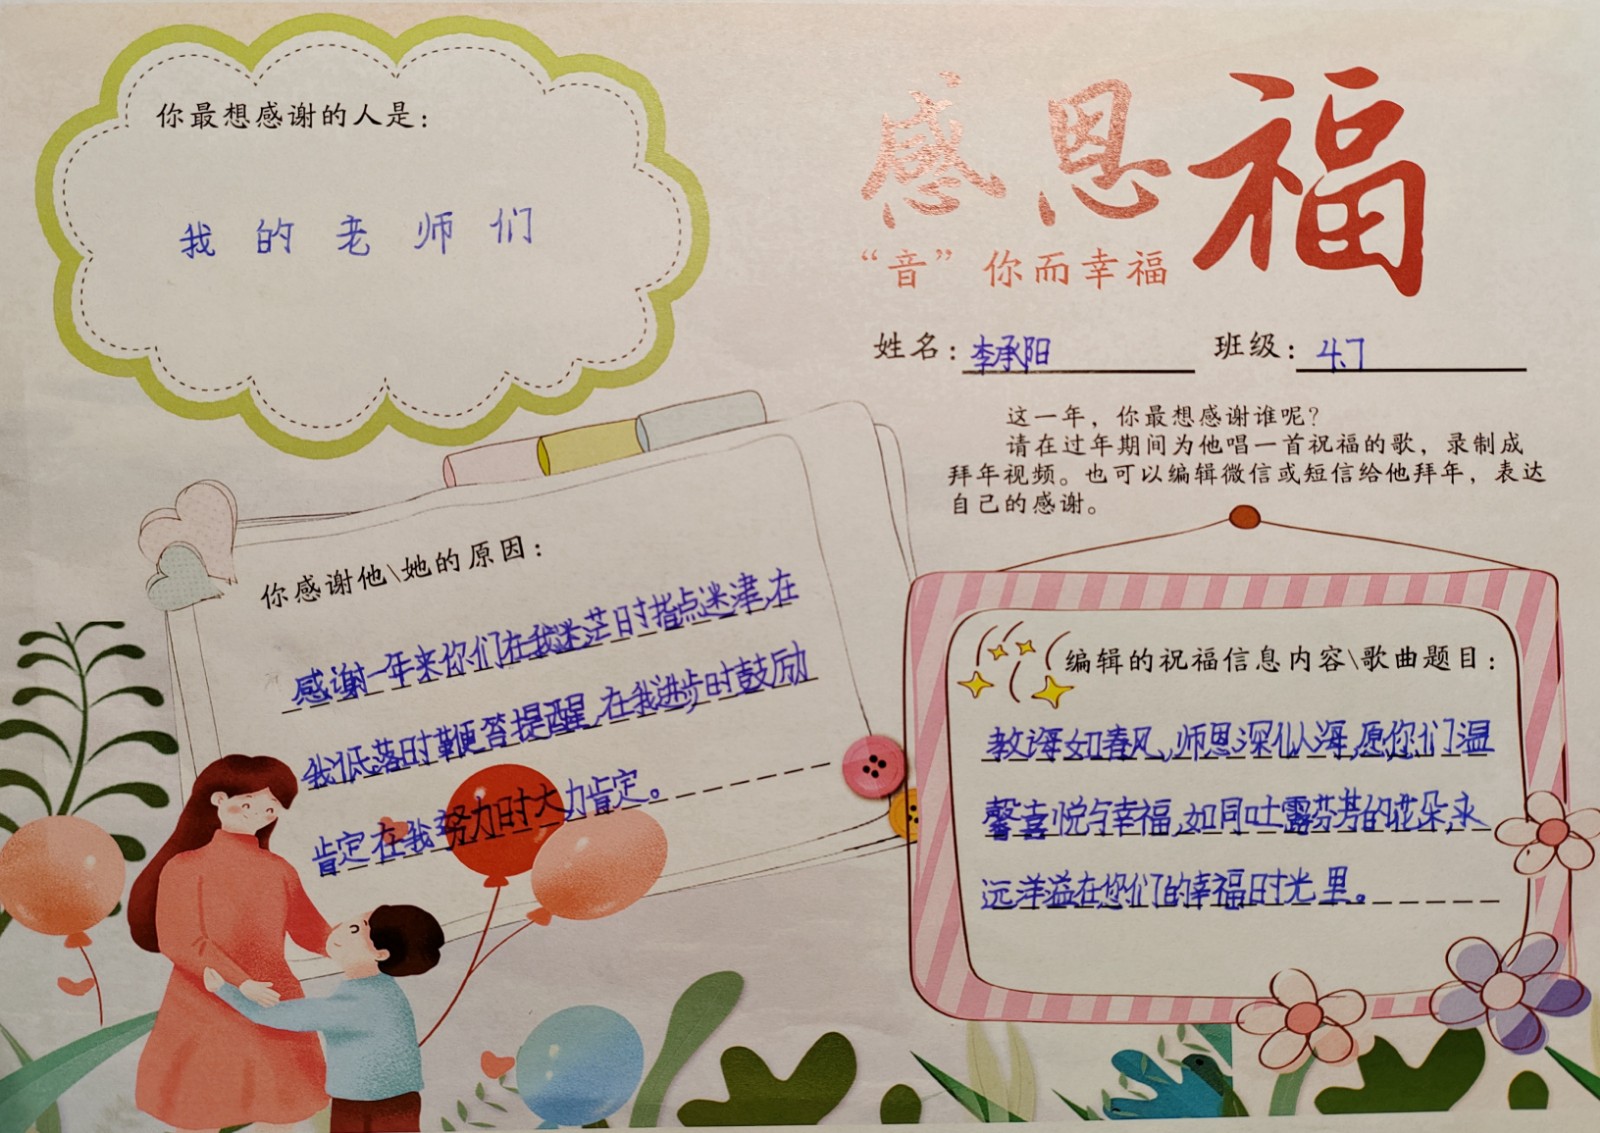 你最想感谢的人是：
我的老师们
感恩福
“音”你而幸福
姓名：李承阳 班级：4.7
这一年，你最想感谢谁呢？
请在过年期间为他唱一首祝福的歌，录制成
拜年视频。也可以编辑微信或短信给他拜年，表达
自己的感谢。
你感谢他\她的原因：
感谢一年来你们在我迷茫时指点迷津,在
我低落时鞭笞提醒,在我进步时鼓励
肯定在我努力时大力肯定。
编辑的祝福信息内容\歌曲题目：
教诲如春风,师恩深似海,愿您们温
馨喜悦与幸福,如同吐露芬芳的花朵,永
远洋溢在您们的幸福时光里。